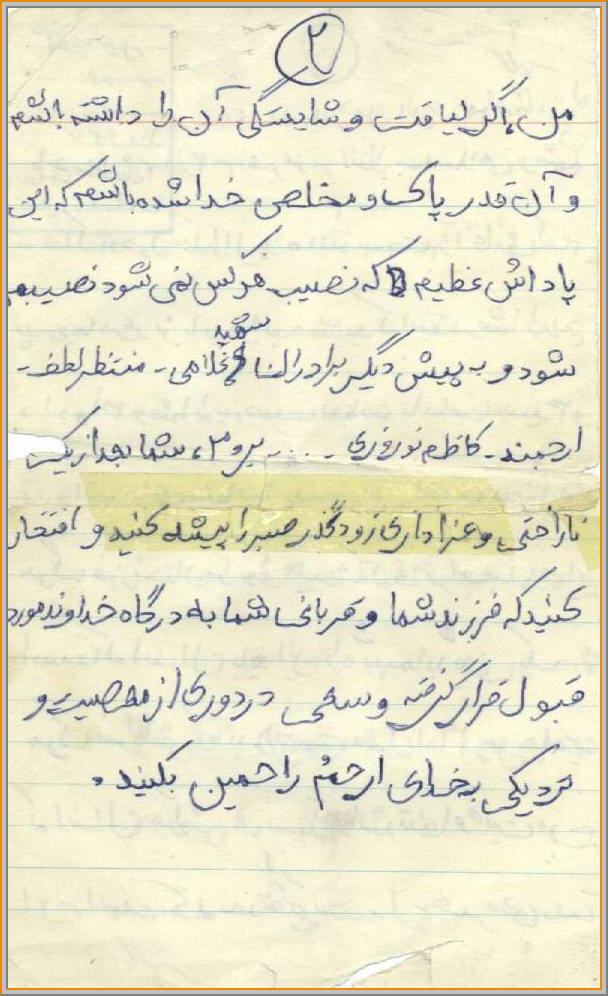 ۲
من اگر لیاقت و شایستگی آن را داشته باشم
و آن قدر پاک و مخلص خدا شده باشم که این
پاداش عظیم که نصیب هر کس نمی شود نصیبم
شهید
شود و به پیش دیگر برادران غلامی - منتظر لطف -
ارجمند - کاظم نوروزی - .... بروم، شما بعد از یک
ناراحتی و عزاداری زودگذر صبر را پیشه کنید و افتخار
کنید که فرزند شما و قربانی شما به درگاه خداوند مورد
قبول قرار گرفته و سعی در دوری از معصیت و
نزدیکی به خدای ارحم راحمین بکنید.